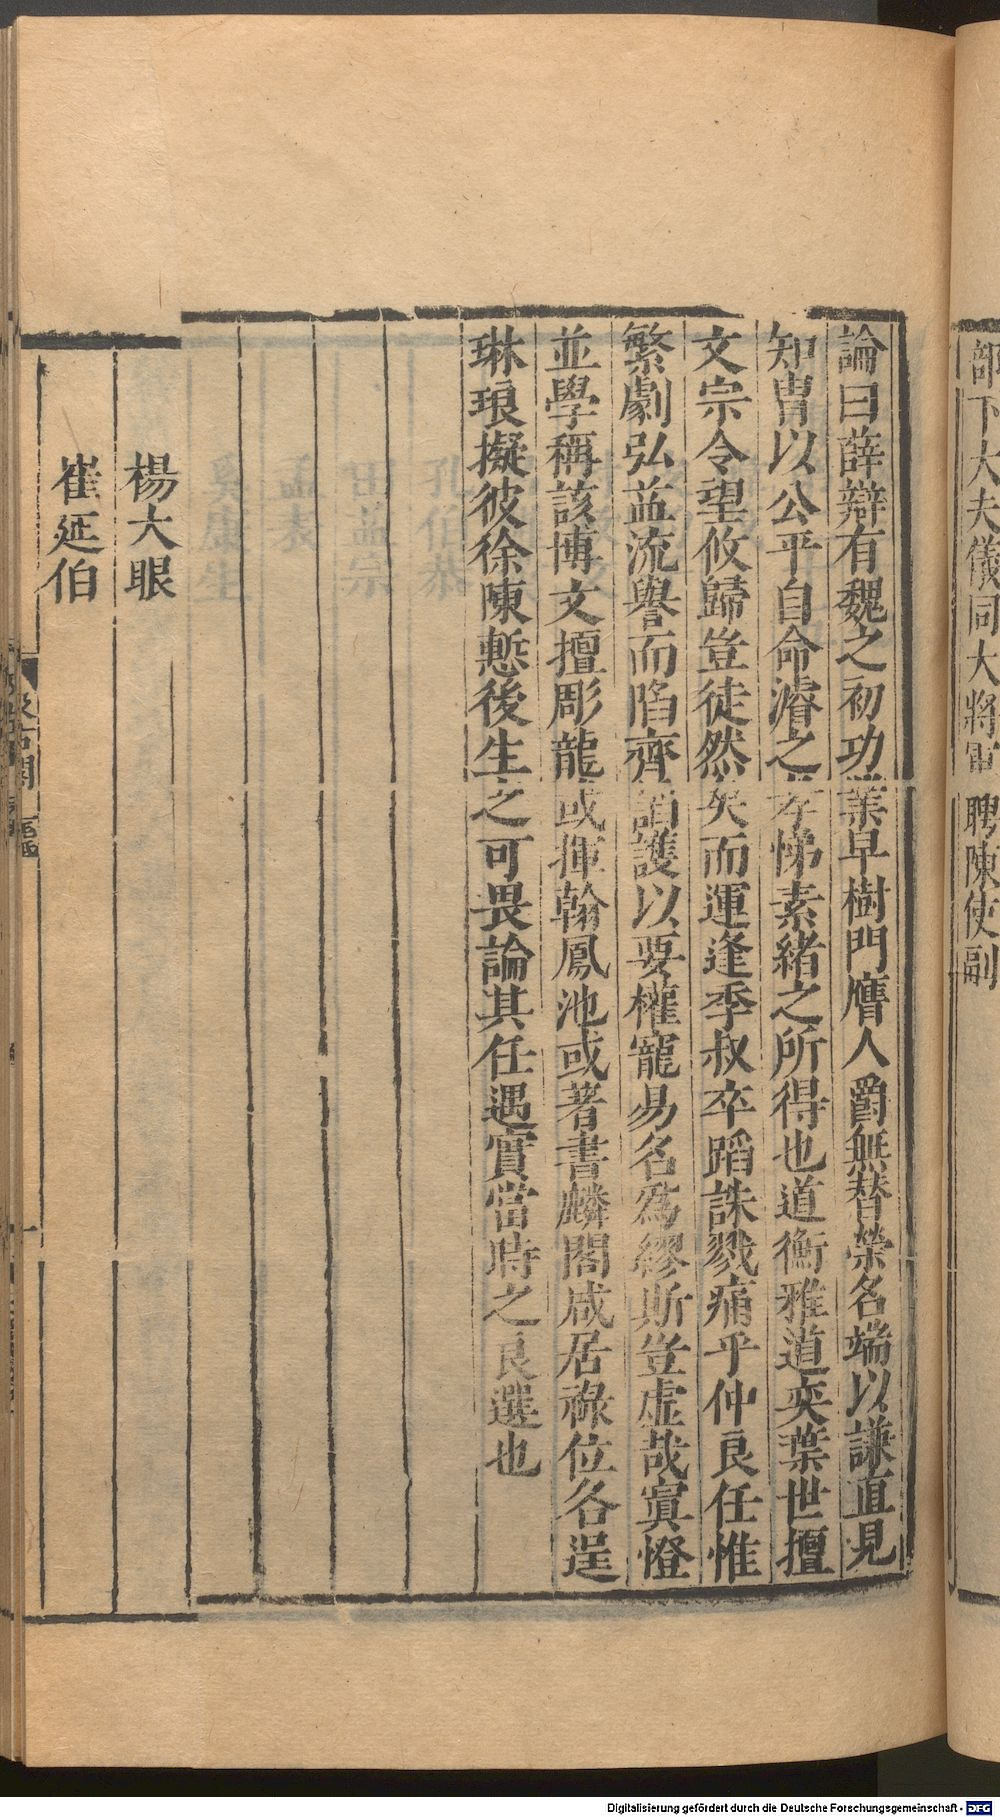 部下大夫儀同大將軍聘陳使副
論曰薛辯有魏之初功業早樹門膺人爵無替榮名端以謙直見
知冑以公平自命濬之孝悌素緒之所得也道衡雅道奕葉世擅
文宗令望攸歸豈徒然矣而運逢季叔卒蹈誅戮痛乎仲良任惟
繁劇弘益流譽而陷齊諂護以要權寵易名為繆斯豈虛哉寘憕
並學稱該博文擅彫龍或揮翰鳳池或著書麟閣咸居祿位各逞
琳琅擬彼徐陳慙後生之可畏論其任遇實當時之良選也
楊大眼
崔延伯
Digitalisierung gefördert durch die Deutsche Forschungsgemeinschaft - DFG